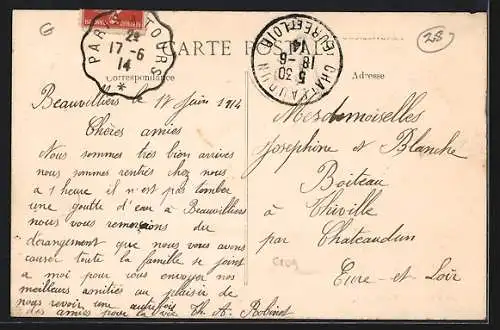 G
PAR TOURS
2E
17-6
14
CARTE POSTALE
CHATEAUDUN
5 30
18-6
14
EURE ET LOIR
Correspondance
Adresse
Beauvilliers le 17 Juin 1914
Chères amies
Nous sommes très bien arrivés
nous sommes rentrés chez nous
a 1 heure il n'est pas tomber
une goutte d'eau à Beauvilliers
nous vous remercions du
dérangement que nous vous avons
causer toute la famille se joint
a moi pour vous envoyer nos
meilleurs amitiés au plaisir de
nous revoir une autrefois
des amies pour la vie Th. A. Robinet
Mesdemoiselles
Josephine et Blanche
Boiteau
à Thiville
par Chateaudun
Eure-et Loir